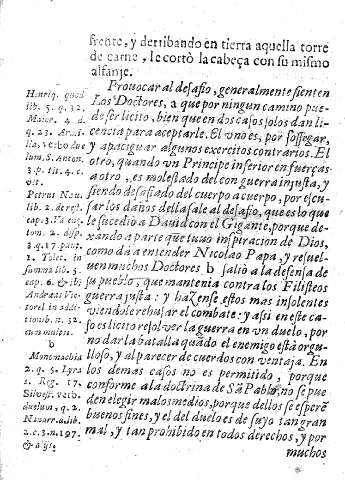 frente, y derribando en tierra aquella torre
de carne, le cortò la cabeça con su mismo
alfanje.
Provocar al desafio, generalmente sienten
Los Doctores, a que por ningun camino pue-
de ser licito, bien que en dos casos solos dan li-
cencia para aceptarle. El uno es, por sossegar,
y apaciguar algunos exercitos contrarios. El
otro, quando un Principe inferior en fuerças
a otro, es molestado del con guerra injusta, y
siendo desafiado del cuerpo a cuerpo, por escu-
sar los daños della sale al desafio, que es lo que
le sucediò a David con el Gigante, porque de-
xando a parte que tuvo inspiracion de Dios,
como da a entender Nicolao Papa, y resuel-
uen muchos Doctores b saliò a la defensa de
su pueblo, que mantenia contra los Filisteos
guerra justa: y hazense estos mas insolentes
viendo rehusar el combate: y assi en este ca-
so es licito resolver la guerra en un duelo, por
no dar la batalla quãdo el enemigo està orgu-
lloso, y al parecer de cuerdos con ventaja. En
los demas casos no es permitido, porque
conforme a la doctrina de Sã Pablo, no se pue
den elegir malos medios, porque dellos se esperẽ
buenos fines, y el del duelo es de suyo tan gran
mal, y tan prohibido en todos derechos, y por
muchos
Henriq. quod
lib. 5. q. 32.
Maior. 4. d.
q. 23. Armi-
lia, verbo due
lum, S. Anton.
3. p. tit. 4. c.
Petrus Nau.
lib. 2. de rest.
cap. 3.
tom. 2. disp.
3. q. 17.
1. Tolet. in
summa lib. 5.
cap. 6. & ibi
Andræas Vic-
torel in addi-
tionib. n. 32.
cum multis.
b
Monomachia
2. q. 5. Lyra
1. Reg. 17.
Silvest. verb.
duelum, q. 2.
Navarr. d. lib.
2. c. 3. n. 197.
& alij.